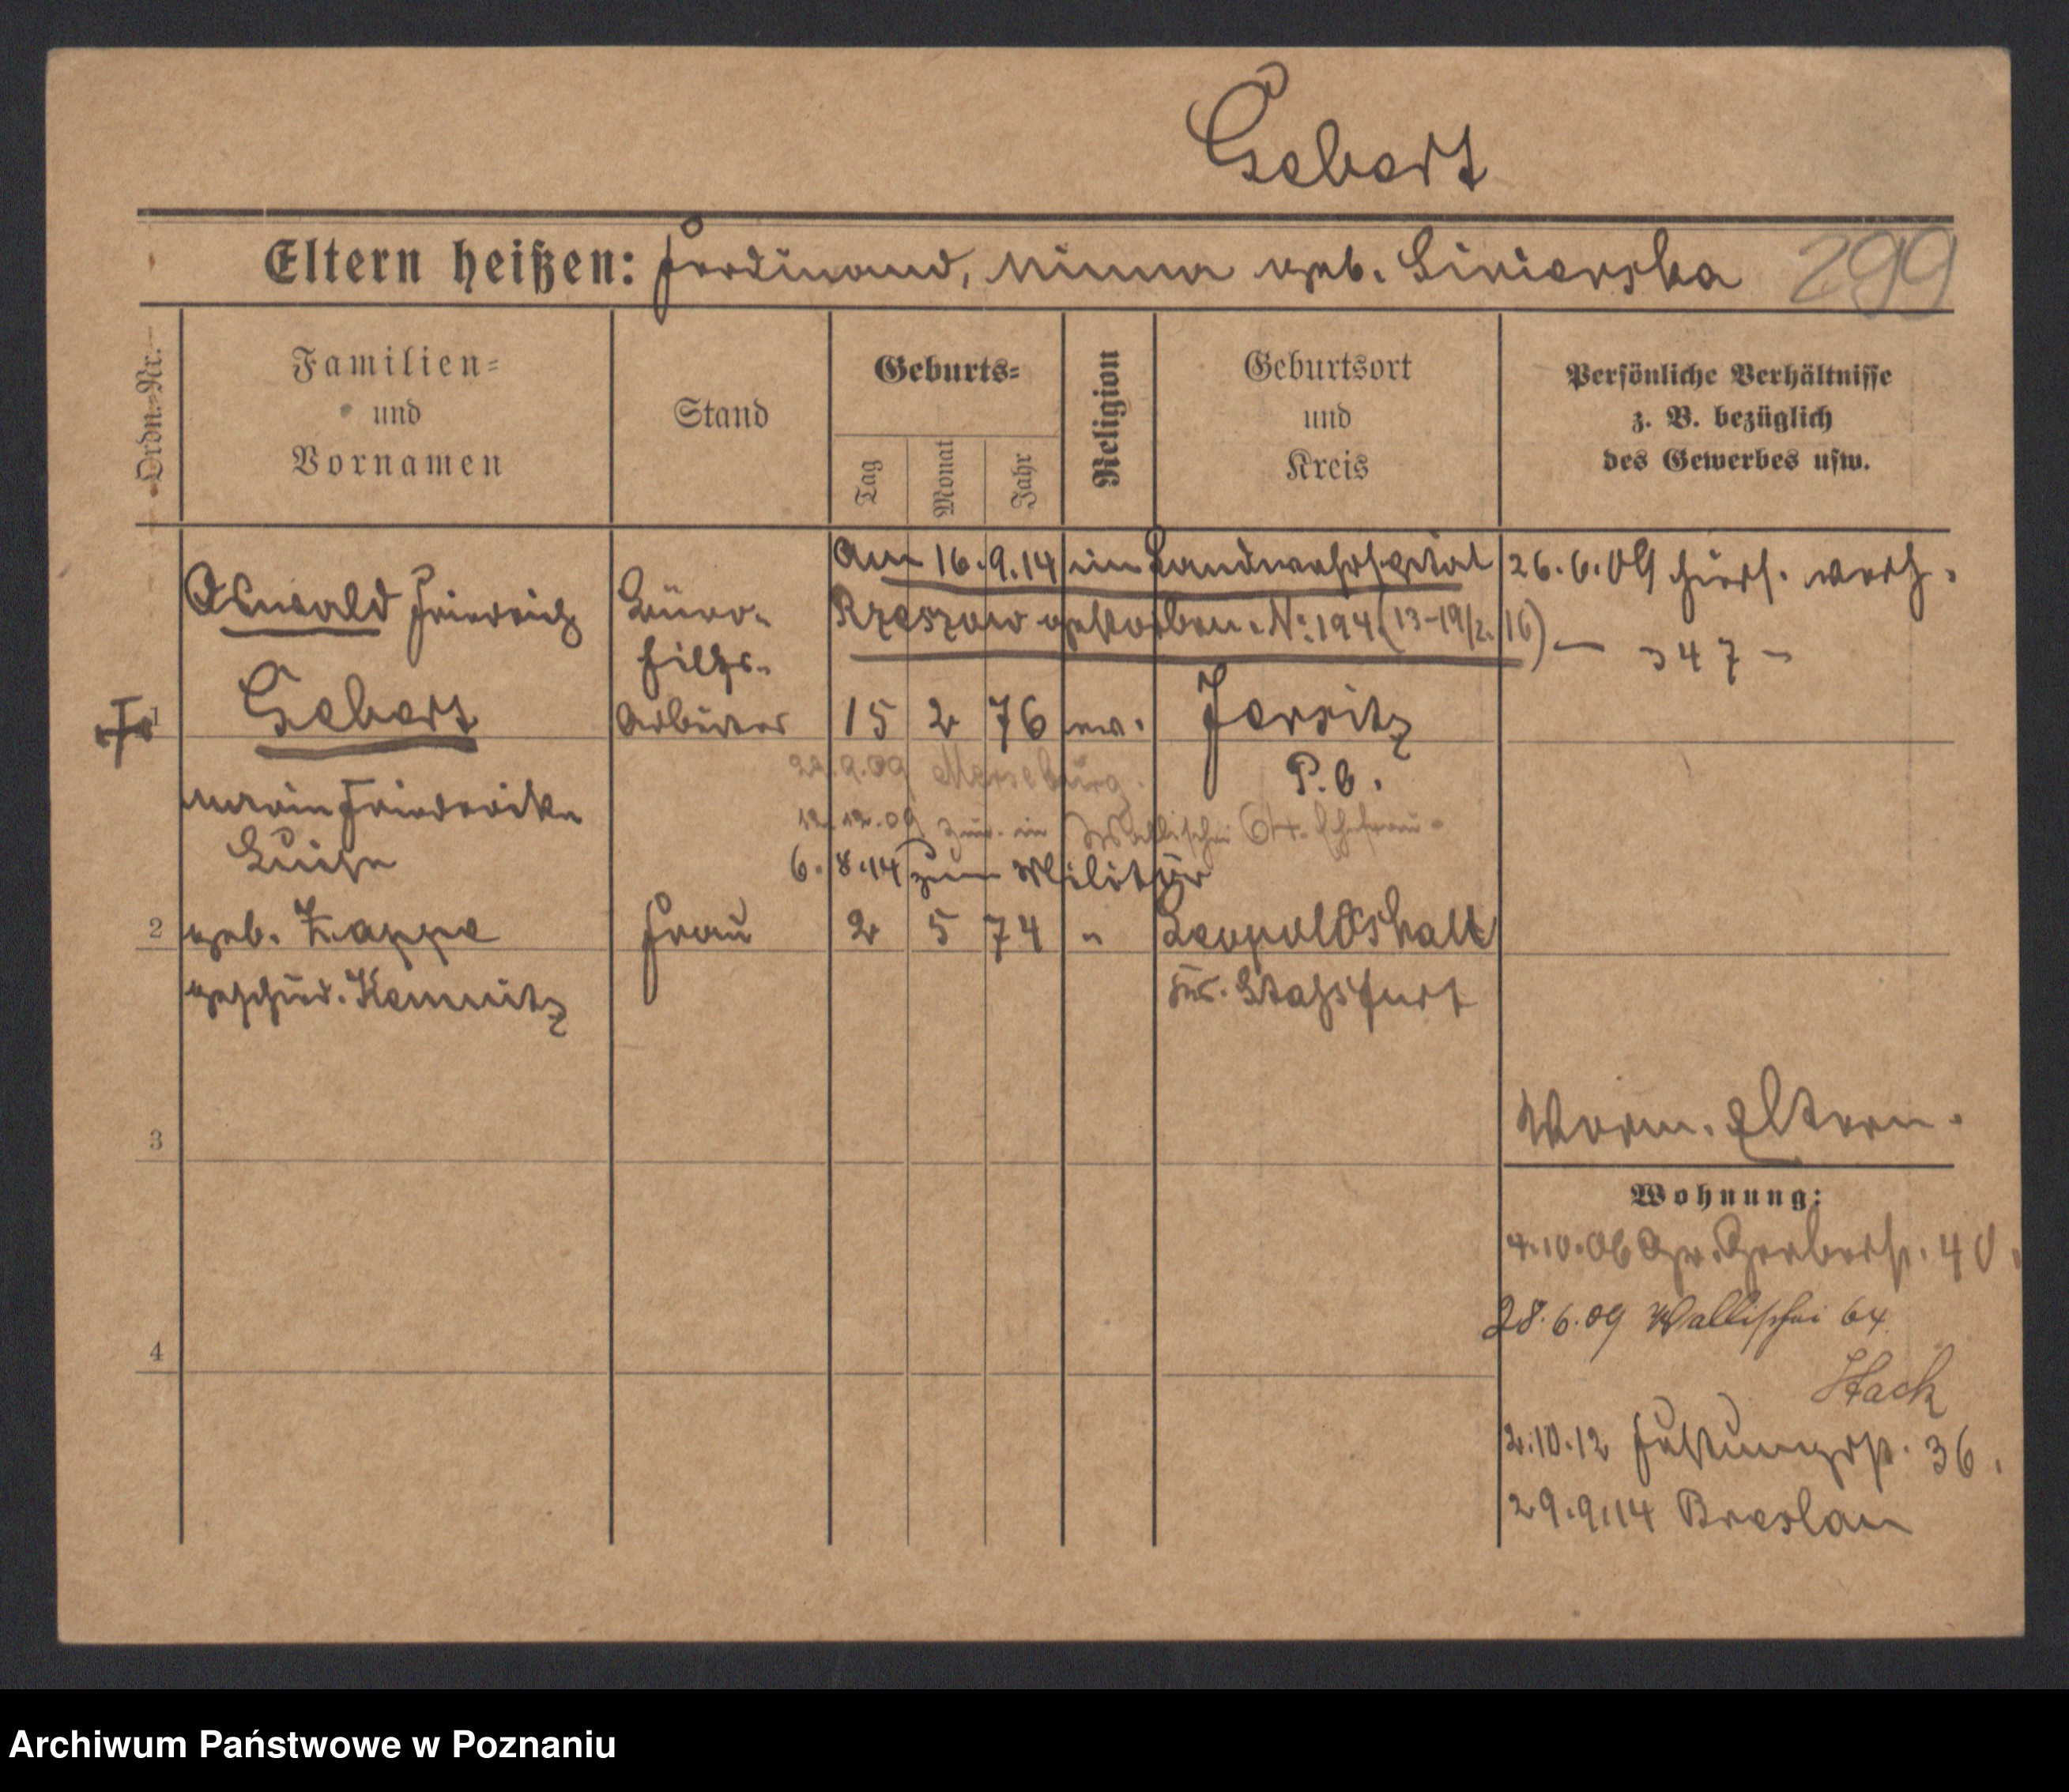 Gebert
Eltern heißen: Ferdinand, Minna geb. Sinierska
299
Ordn.-Nr.
Familien-
und
Vornamen
Stand
Geburts-
Tag
Monat
Jahr
Religion
Geburtsort
und
Kreis
Persönliche Verhältnisse
z. B. bezüglich
des Gewerbes usw.
Am 16.9.14 im
Rzeszow gestorben. No. 194 (13-19/2. 16)
26.6.09 hiers. verh.
— 347 —
1
Oswald Friedrich
Gebert
Büro-
hilfs-
Arbeiter
15 2 76 ev. Jersitz
P.O.
22.9.09 Merseburg.
12.12.09 zur. in Wallischei 64. Ehefrau
6.8.14 zum Militär
2
Marie Friederike
Luise
geb. Zappe
geschied. Kemnitz
Frau
2 5 74 " Leopoldshall
Kr. Staßfurt
3
4
Verm. Eltern.
Wohnung:
4.10.06 Gr. Gerberst. 40.
28.6.09 Wallischei 64
Hack
2.10.12 Festungsst. 36.
29.9.14 Breslau
Archiwum Państwowe w Poznaniu